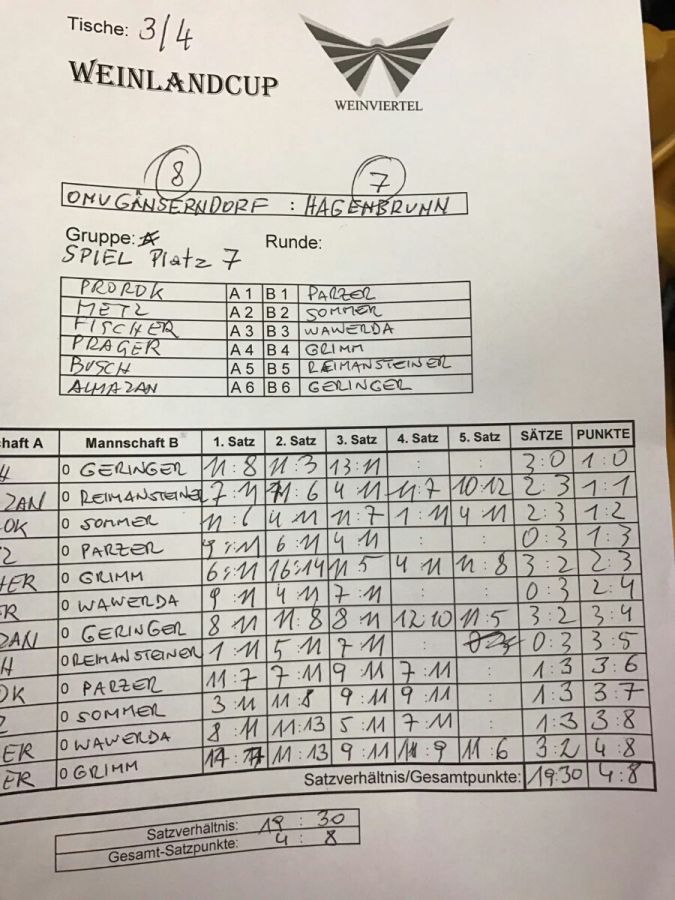 Tische: 3/4
WEINLANDCUP
WEINVIERTEL
8 7
OMV GÄNSERNDORF : HAGENBRUNN
Gruppe: Runde:
SPIEL Platz 7
PROROK A 1 B 1 PARZER
METZ A 2 B 2 SOMMER
FISCHER A 3 B 3 WAWERDA
PRAGER A 4 B 4 GRIMM
BUSCH A 5 B 5 REIMANSTEINER
ALMAZAN A 6 B 6 GERINGER
haft A Mannschaft B 1. Satz 2. Satz 3. Satz 4. Satz 5. Satz SÄTZE PUNKTE
H 0 GERINGER 11:8 11:3 13:11 : : 3:0 1:0
ZAN 0 REIMANSTEINER 7:11 11:6 4 11 11:7 10:12 2:3 1:1
OK 0 SOMMER 11:6 4 11 11:7 1:11 4 11 2:3 1:2
Z 0 PARZER 9:11 6:11 4 11 : : 0:3 1:3
HER 0 GRIMM 6:11 16:14 11 5 4 11 11:8 3:2 2:3
ER 0 WAWERDA 9:11 4 11 7:11 : : 0:3 2:4
ZAN 0 GERINGER 8 11 11:8 8 11 12 10 11:5 3:2 3:4
H 0 REIMANSTEINER 1 11 5 11 7 11 : 0:3 3:5
OK 0 PARZER 11:7 7:11 9 11 7:11 : 1:3 3:6
Z 0 SOMMER 3:11 11:8 9:11 9:11 : 1:3 3:7
ER 0 WAWERDA 8:11 11:13 5:11 7:11 : 1:3 3:8
ER 0 GRIMM 11:13 9:11 11:9 11:6 3:2 4:8
Satzverhältnis/Gesamtpunkte: 19:30 4:8
Satzverhältnis: 19 : 30
Gesamt-Satzpunkte: 4 : 8